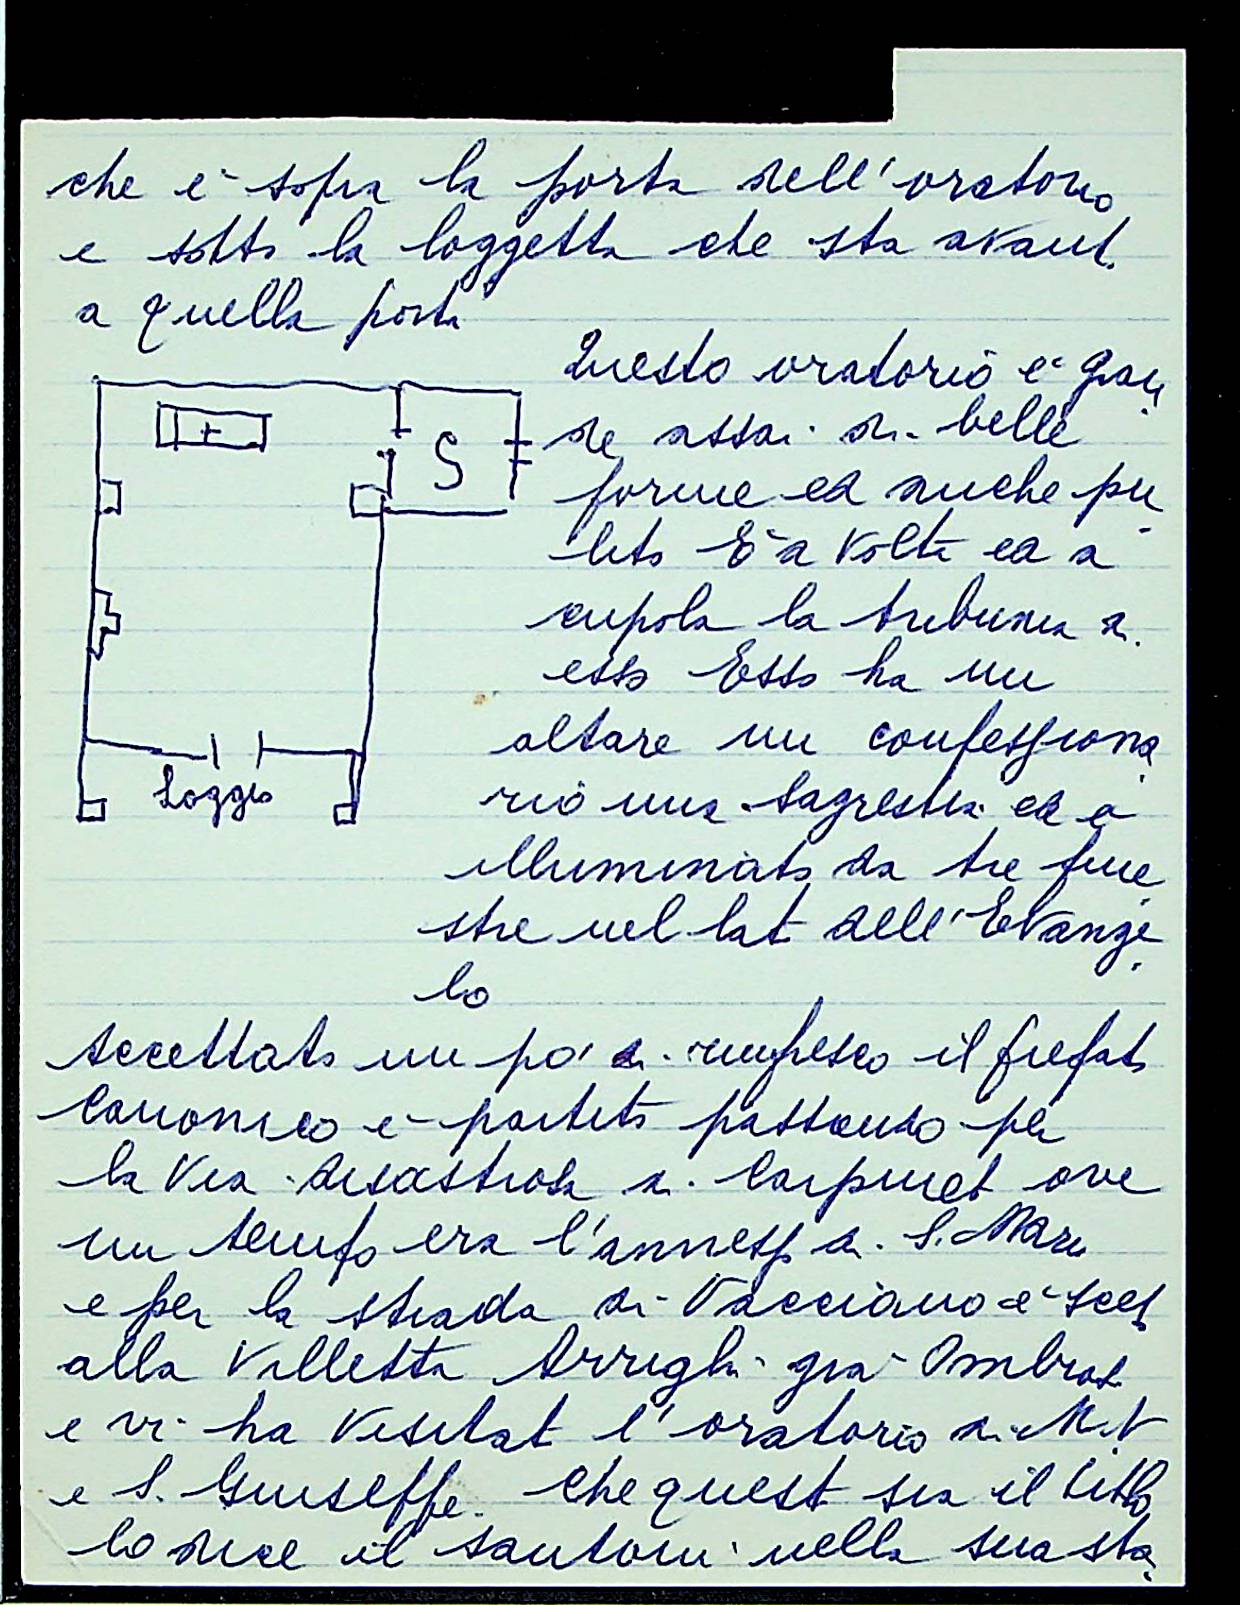 che è sopra la porta dell'oratorio
e sotto la loggetta che sta avanti
a quella porta
Questo oratorio è gran
de assai di belle
forme ed anche pu
lito È a volta ed a
cupola la tribuna di
esso Esso ha un
altare un confessiona
rio una sagrestia ed è
illuminato da tre fine
stre nel lato dell'Evange
lo
S
Loggia
Accettato un po' di rinfresco il prefato
Canonico è partito passando per
la via disastrosa di Carpineto ove
un tempo era l'annesso di S. Maria
e per la strada di Vacciano è sceso
alla Villetta Arrighi già Ombrosi
e vi ha visitato l'oratorio di M.V
e S. Giuseppe. Che questo sia il titolo
lo dice il Santoni nella sua sta